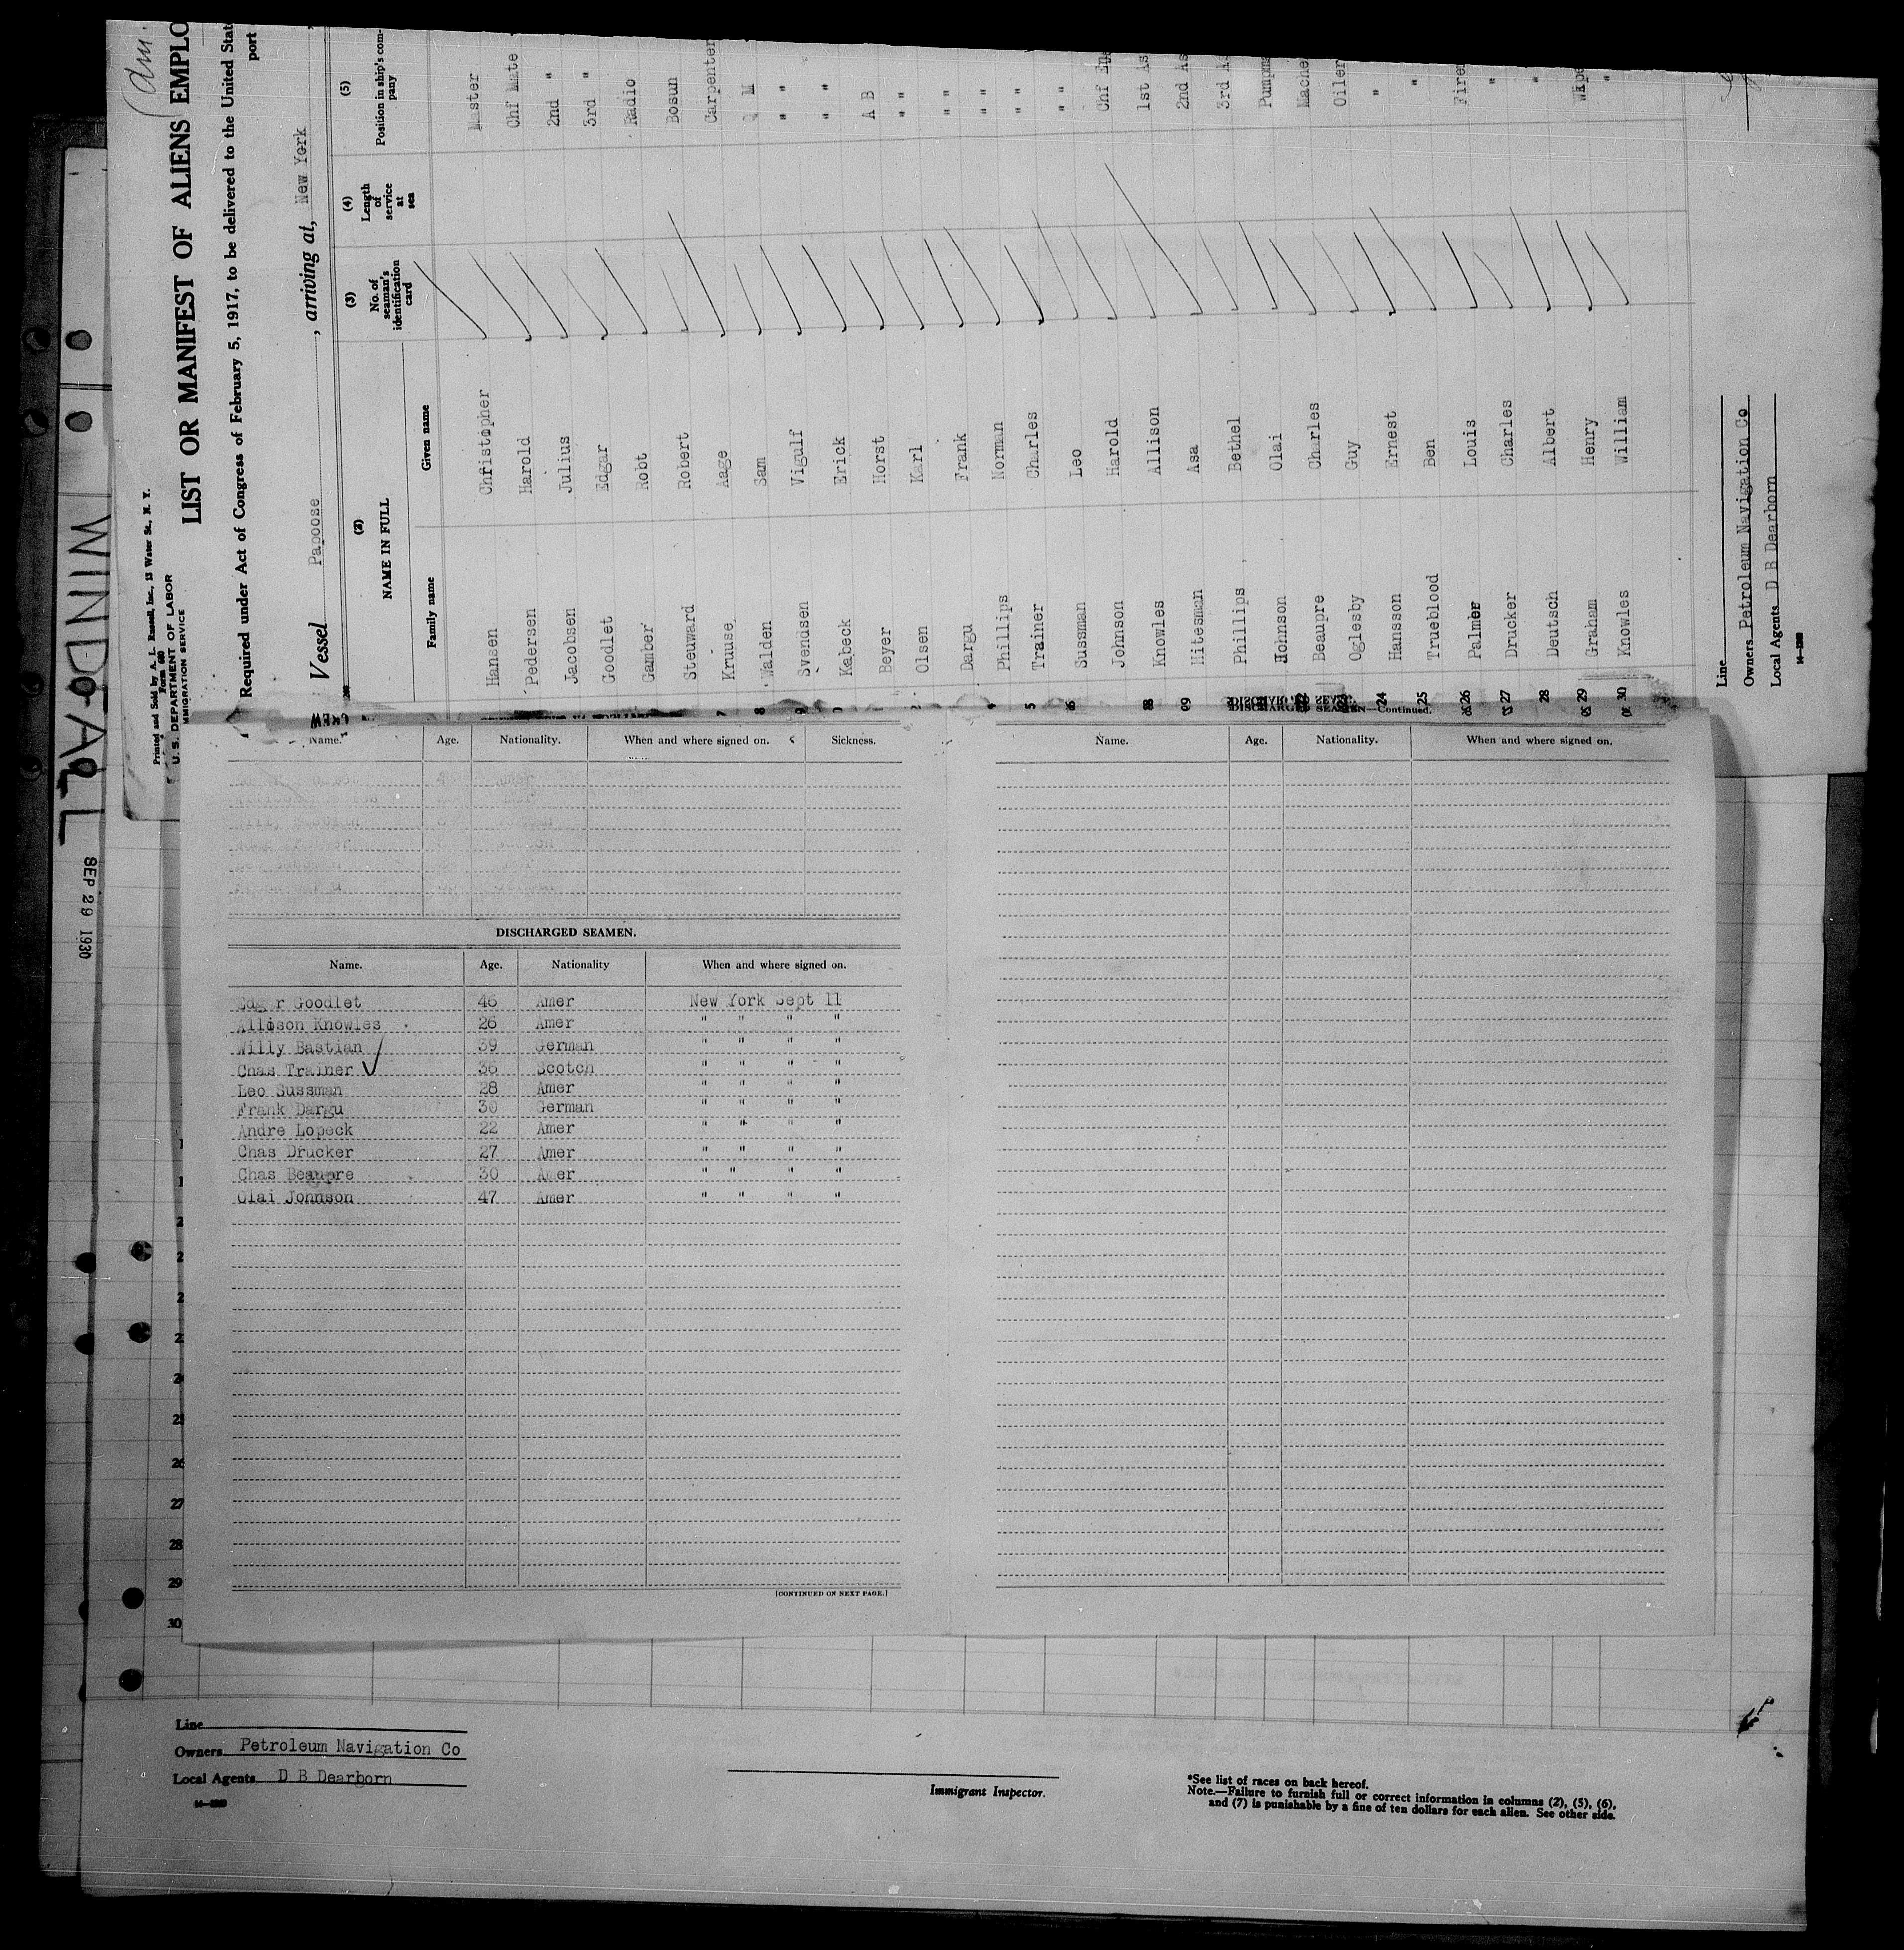 WINDOALL
SEP 29 1930
Printed and Sold by A. L. Russell, Inc., 13 Water St., N. Y.
Form 680
U. S. DEPARTMENT OF LABOR
IMMIGRATION SERVICE
(Am.
LIST OR MANIFEST OF ALIENS EMPLO
Required under Act of Congress of February 5, 1917, to be delivered to the United Stat
port
Vessel Papoose , arriving at, New York
(2) (3) (4) (5)
NAME IN FULL No. of seaman's identification card Length of service at sea Position in ship's com-pany
Family name Given name
Hansen Christopher Master
Pedersen Harold Chf Mate
Jacobsen Julius 2nd "
Goodlet Edgar 3rd "
Gamber Robt Radio
Steuward Robert Bosun
7 Kruuse Aage Carpenter
8 Walden Sam Q M
9 Svendsen Vigulf " "
Kabeck Erick " "
Beyer Horst A B
Olsen Karl " "
Dargu Frank " "
Phillips Norman " "
5 Trainer Charles " "
Sussman Leo " "
Johnson Harold Chf Eng
Knowles Allison 1st As
Hitesman Asa 2nd As
Phillips Bethel 3rd As
Johnson Olai Pumpma
Beaupre Charles Mache
Oglesby Guy Oiler
24 Hansson Ernest "
25 Trueblood Ben "
26 Palmer Louis Firem
27 Drucker Charles "
28 Deutsch Albert "
29 Graham Henry Wkpe
30 Knowles William "
Line
Owners Petroleum Navigation Co
Local Agents D B Dearborn
CREW
Name. Age. Nationality. When and where signed on. Sickness.
DISCHARGED SEAMEN.
Name. Age. Nationality When and where signed on.
Edgar Goodlet 46 Amer New York Sept 11
Allison Knowles 26 Amer " " " "
Willy Bastian 39 German " " " "
Chas Trainer 36 Scotch " " " "
Leo Sussman 28 Amer " " " "
Frank Dargu 30 German " " " "
Andre Lopeck 22 Amer " " " "
Chas Drucker 27 Amer " " " "
Chas Beaupre 30 Amer " " " "
Olai Johnson 47 Amer " " " "
[CONTINUED ON NEXT PAGE.]
DISCHARGED SEAMEN—Continued.
Name. Age. Nationality. When and where signed on.
26
27
28
29
30
Line
Owners Petroleum Navigation Co
Local Agents D B Dearborn
Immigrant Inspector.
*See list of races on back hereof.
Note.—Failure to furnish full or correct information in columns (2), (5), (6),
and (7) is punishable by a fine of ten dollars for each alien. See other side.